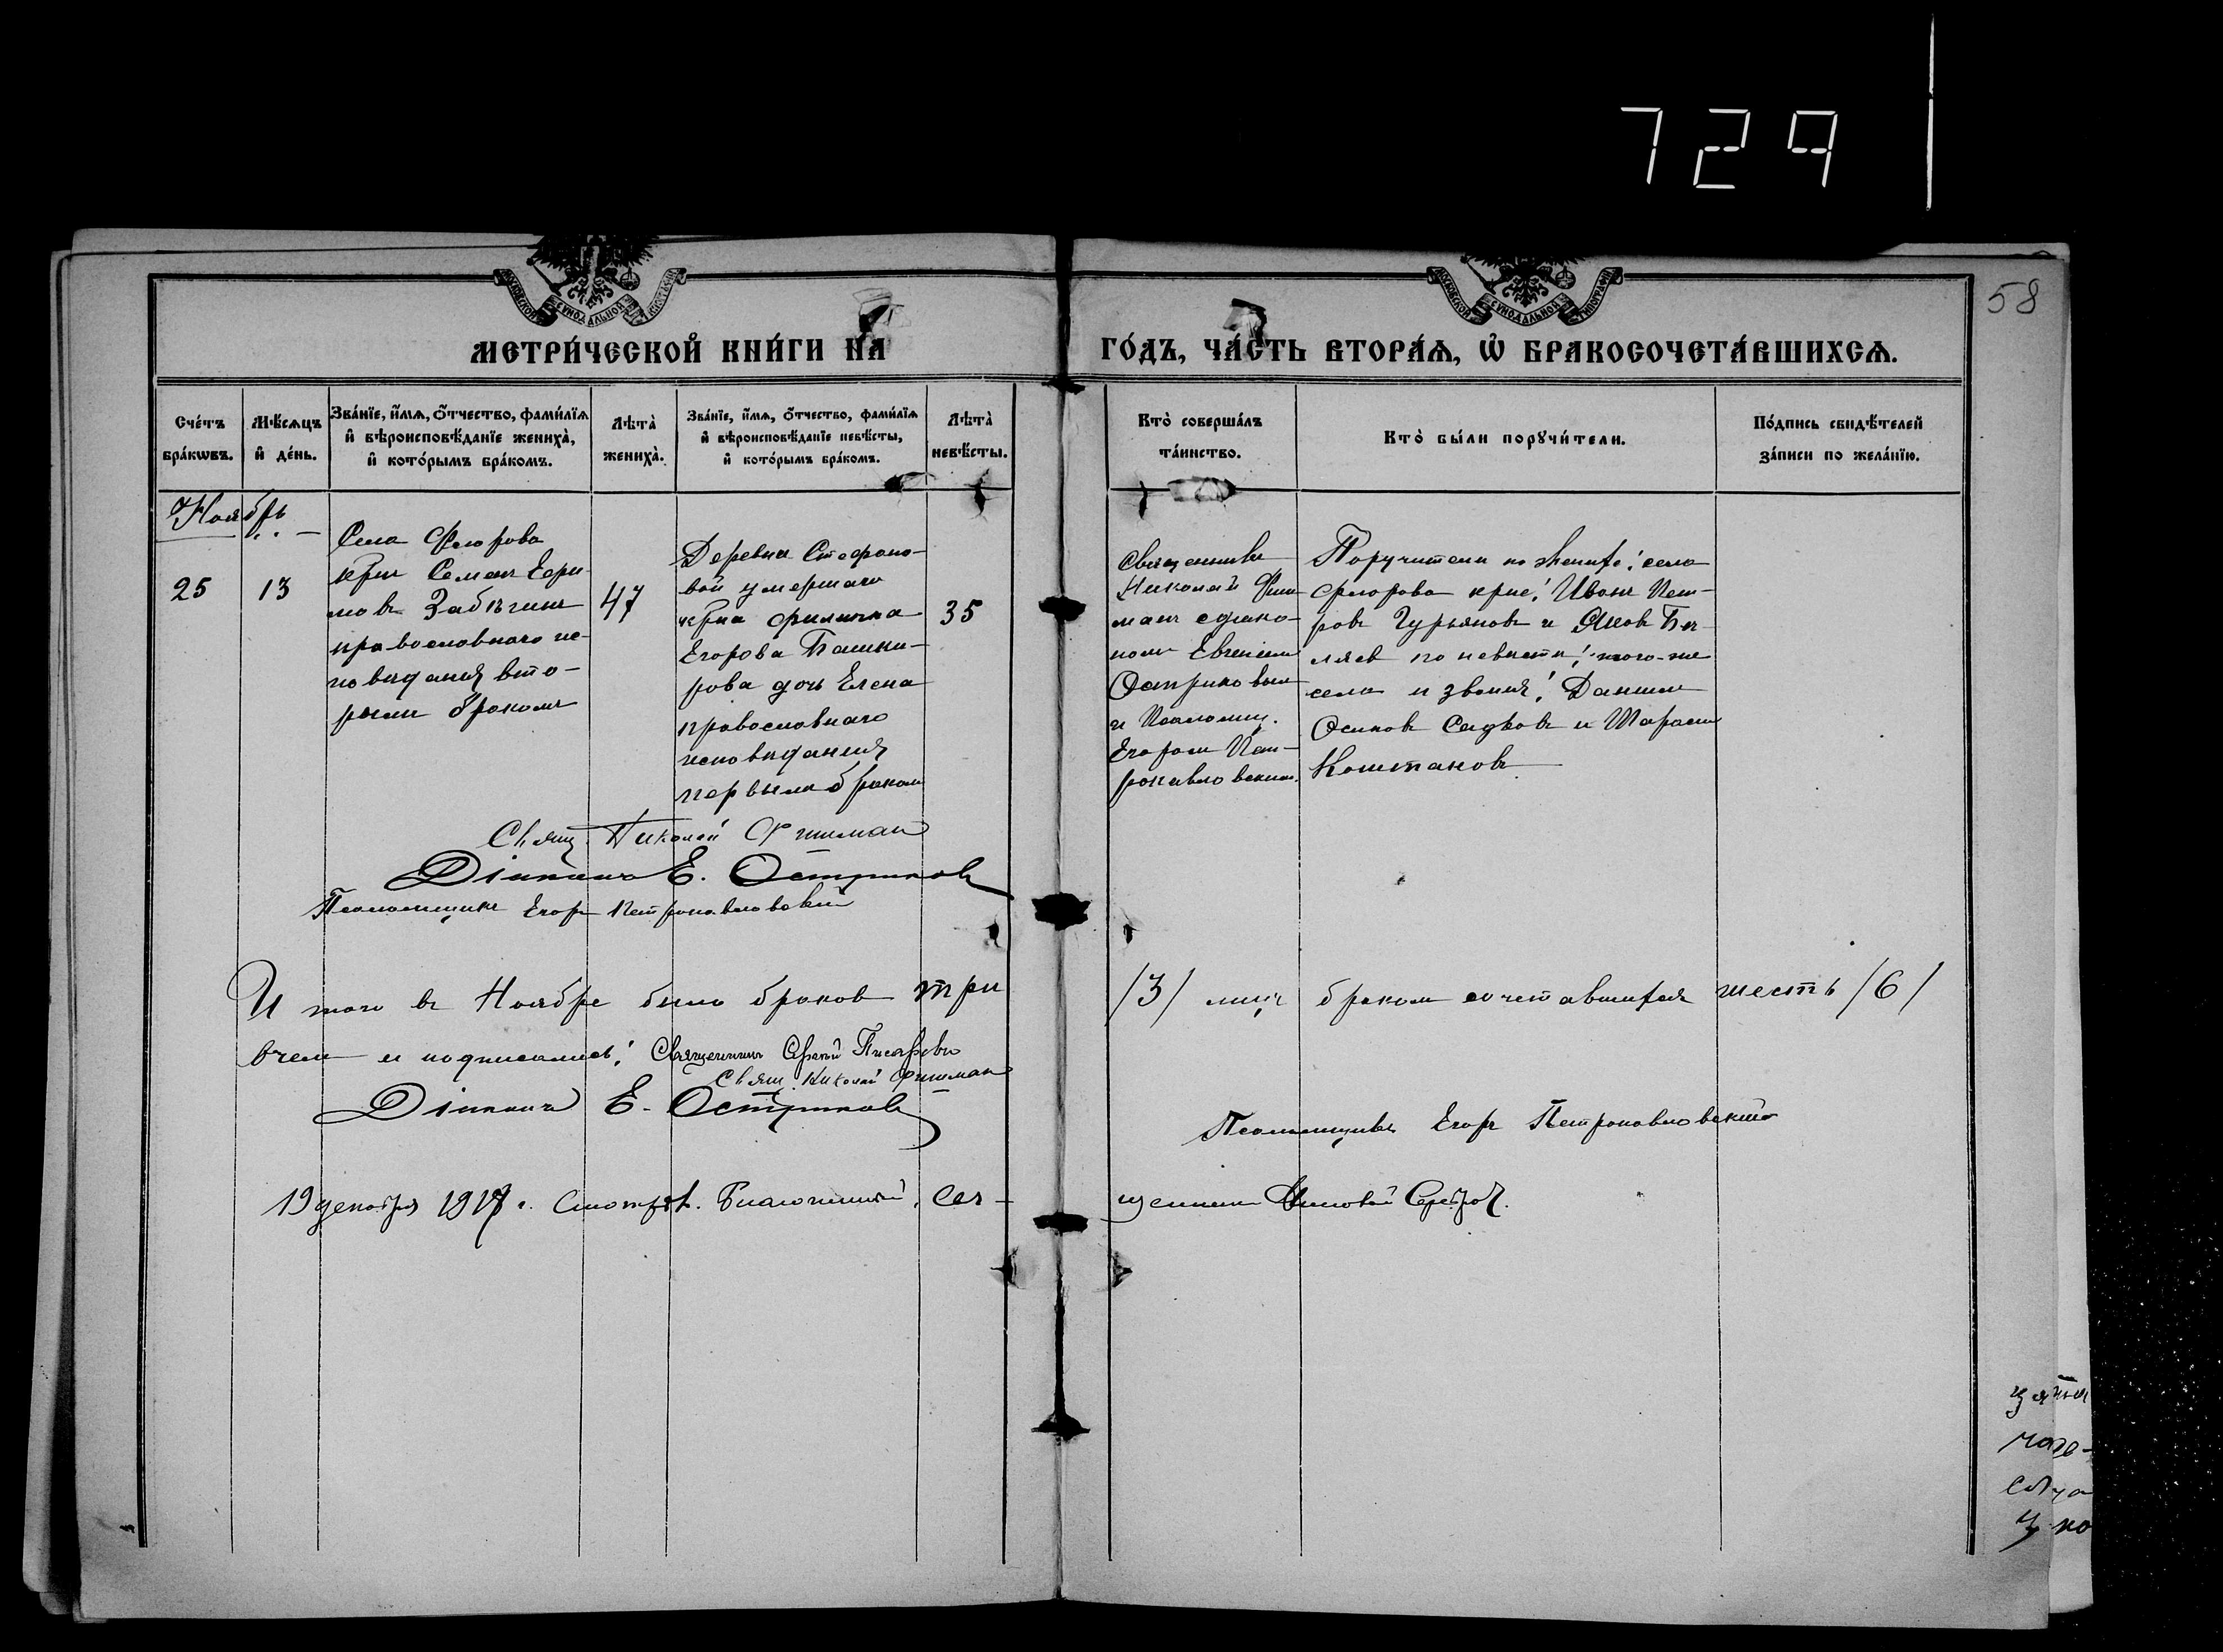 729
58
МОСКОВСКОЙ СѴНОДАЛЬНОЙ ТИПОГРАФІИ
МЕТРИ́ЧЕСКОЙ КНИ́ГИ НА
ГО́ДЪ, ЧА́СТЬ ВТОРА́Ѧ, Ѡ҆ БРАКОСОЧЕТА́ВШИХСѦ.
Сче́тъ
бра́кѡвъ.
Мѣ́сѧцъ
и҆ де́нь.
Зва́нїе, и҆́мѧ, ѻ҆́тчество, фами́лїѧ
и҆ вѣроисповѣ́данїе жениха̀,
и҆ кото́рымъ бра́комъ.
Лѣта̀
жениха̀.
Зва́нїе, и҆́мѧ, ѻ҆́тчество, фами́лїѧ
и҆ вѣроисповѣ́данїе невѣ́сты,
и҆ кото́рымъ бра́комъ.
Лѣта̀
невѣ́сты.
Кто̀ соверша́лъ
та́инство.
Кто̀ бы́ли порꙋчи́тели.
По́дпись свидѣ́телей
за́писи по жела́нїю.
Ноябрь
25
13
Села Флорова
крн Семен Ефи-
мовъ Забѣгинъ
православнаго ис-
поведания вто-
рымъ бракомъ
47
Деревни Стефано-
вой умершаго
крна Филиппа
Егорова Башки-
рова дочь Елена
православнаго
исповедания
первым браком
35
Священникъ
Николай Фиш-
ман с диако-
ном Евгением
Остриковым
и Псаломщ.
Егором Пет-
ропавловским.
Поручители по женихе: села
Флорова крне: Иванъ Пет-
ровъ Гурьяновъ и Яков Бе-
ляев по невести: того-же
села и звания: Данил
Осиповъ Садковъ и
Коштановъ
Свящ. Николай Фишман
Діаконъ Е. Остриковъ
Псаломщикъ Егоръ Петропавловский
И того въ Ноябре было браков три
/3/ лицъ браком сочетавшихся шесть /6/
в чем и подписались: Священникъ Писаревъ
Свящ. Николай Фишман
Діаконъ Е. Остриковъ
Псаломщикъ Егоръ Петропавловский
19 декабря 1917 г. Смотрѣл. Благочинный, свя-
щенник